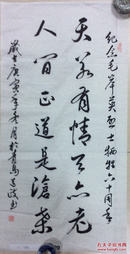 纪念毛岸英烈士牺牲六十周年
天若有情天亦老
人间正道是沧桑
岁在庚寅年冬月于青岛